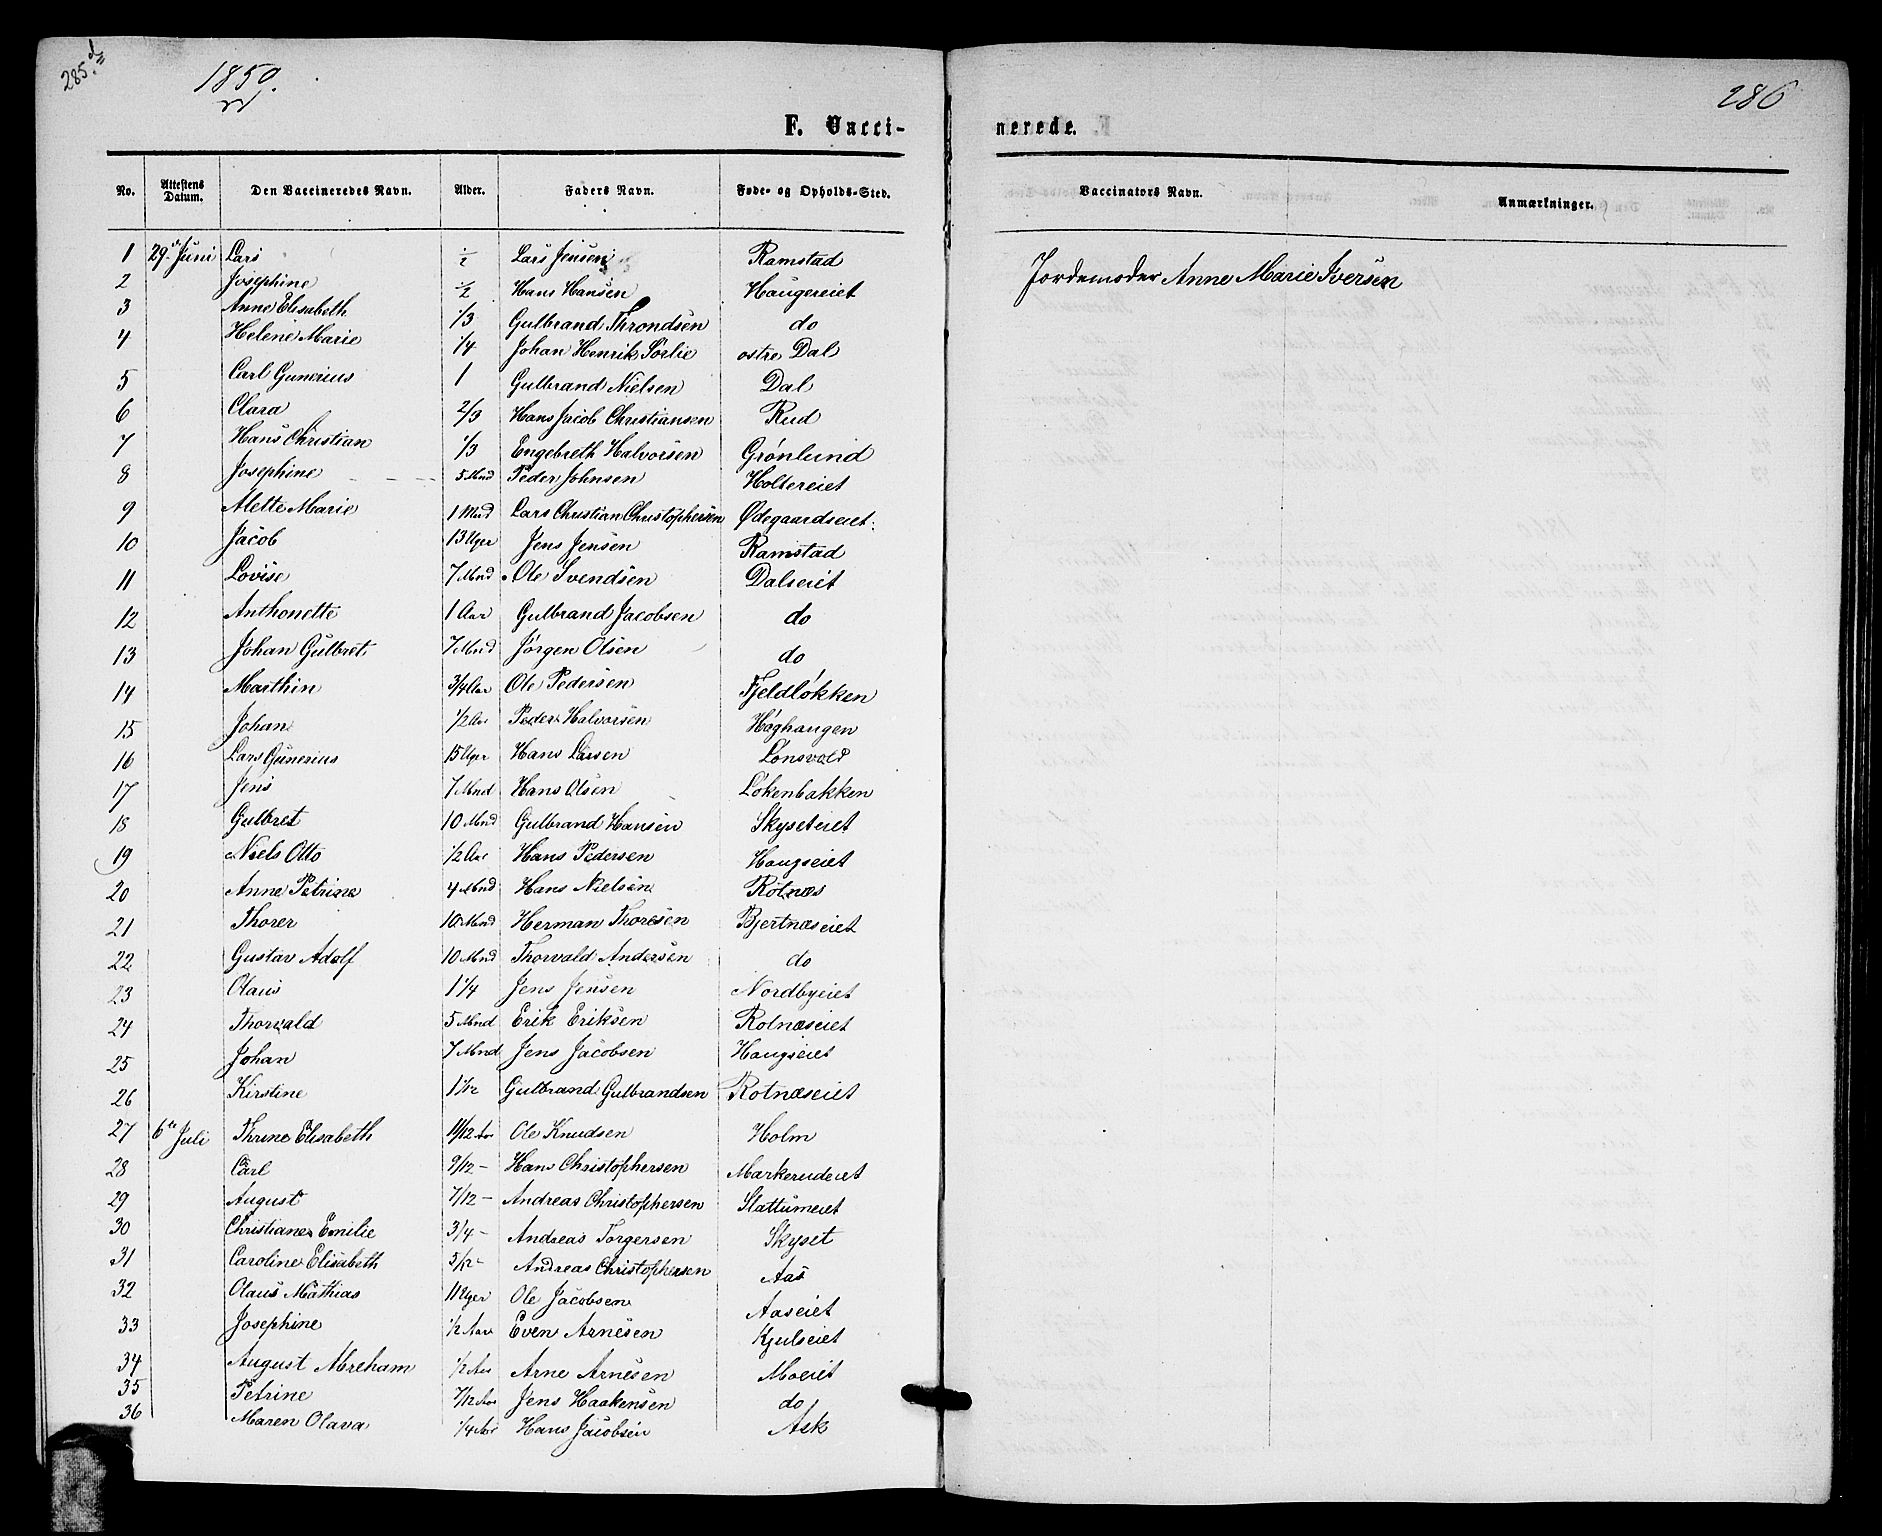 285d
1859.
286
F. Vacci-
nerede.
No. Attestens Datum. Den Vaccineredes Navn. Alder. Faders Navn. Føde- og Opholds-Sted. Vaccinators Navn. Anmærkninger.
1 29de Juni Lars 1/2 Lars Jensen Ramstad Jordemoder Anne Marie Iversen
2 Josephine 1/2 Hans Hansen Haugereiet
3 Anne Elisabeth 1/3 Gulbrand Throndsen do
4 Helene Marie 1/4 Johan Henrik Sørlie østre Dal
5 Carl Gunerius 1 Gulbrand Nielsen Dal
6 Clara 2/3 Hans Jacob Christiansen Rud
7 Hans Christian 1/3 Engebreth Halvorsen Grønlund
8 Josephine 5 Mnd Peder Johnsen Holtereiet
9 Alette Marie 1 Mnd Lars Christian Christophersen Ødegaardseiet
10 Jacob 13 Uger Jens Jensen Ramstad
11 Lovise 7 Mnd Ole Svendsen Dalseiet
12 Anthonette 1 Aar Gulbrand Jacobsen do
13 Johan Gulbret 7 Mnd Jørgen Olsen do
14 Marthin 3/4 Aar Ole Pedersen Fjeldløkken
15 Johan 1/2 Aar Peder Halvorsen Høghaugen
16 Lars Gunerius 15 Uger Hans Larsen Lønsvald
17 Jens 7 Mnd Hans Olsen Løkenbakken
18 Gulbret 10 Mnd Gulbrand Hansen Skyseteiet
19 Niels Otto 1/2 Aar Hans Pedersen Haugseiet
20 Anne Petrine 4 Mnd Hans Nielsen Rotnæs
21 Thorer 10 Mnd Herman Thoresen Bjertnæseiet
22 Gustav Adolf 10 Mnd Thorvald Andersen do
23 Olaus 1 1/4 Jens Jensen Nordbyeiet
24 Thorvald 5 Mnd Erik Eriksen Rotnæseiet
25 Johan 7 Mnd Jens Jacobsen Haugseiet
26 Kirstine 1 1/12 Gulbrand Gulbrandsen Rotnæseiet
27 6te Juli Thrine Elisabeth 11/12 Aar Ole Knudsen Holm
28 Carl 9/12 - Hans Christophersen Markerudeiet
29 August 7/12 - Andreas Christophersen Slattumeiet
30 Christiane Emilie 3/4 - Andreas Torgersen Skyset
31 Caroline Elisabeth 5/12 - Andreas Christophersen Aas
32 Olaus Mathias 11 Uger Ole Jacobsen Aaseiet
33 Josephine 1/2 Aar Even Arnesen Kjulseiet
34 August Abreham 1/2 Aar Arne Arnesen Moeiet
35 Petrine 7/12 Aar Jens Haakensen do
36 Maren Olava 1/4 Aar Hans Jacobsen Ask